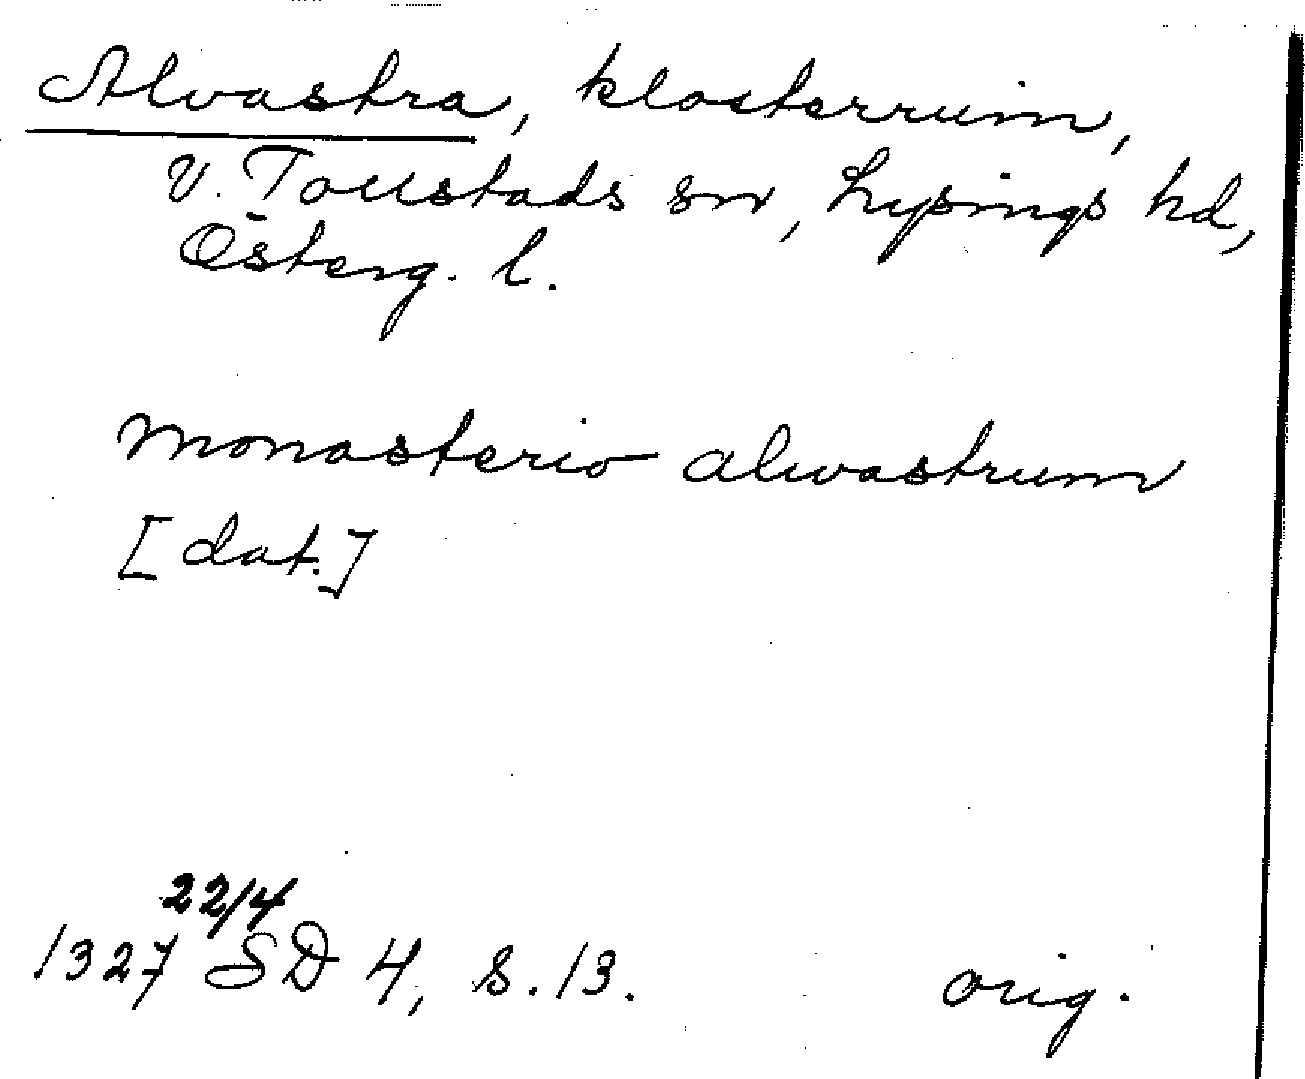 Alvastra, klosterruin,
V. Tollstads sn, Lysings hd,
Österg. l.
monasterio alwastrum
[dat.]
22/4
1327 SD 4, s. 13. orig.